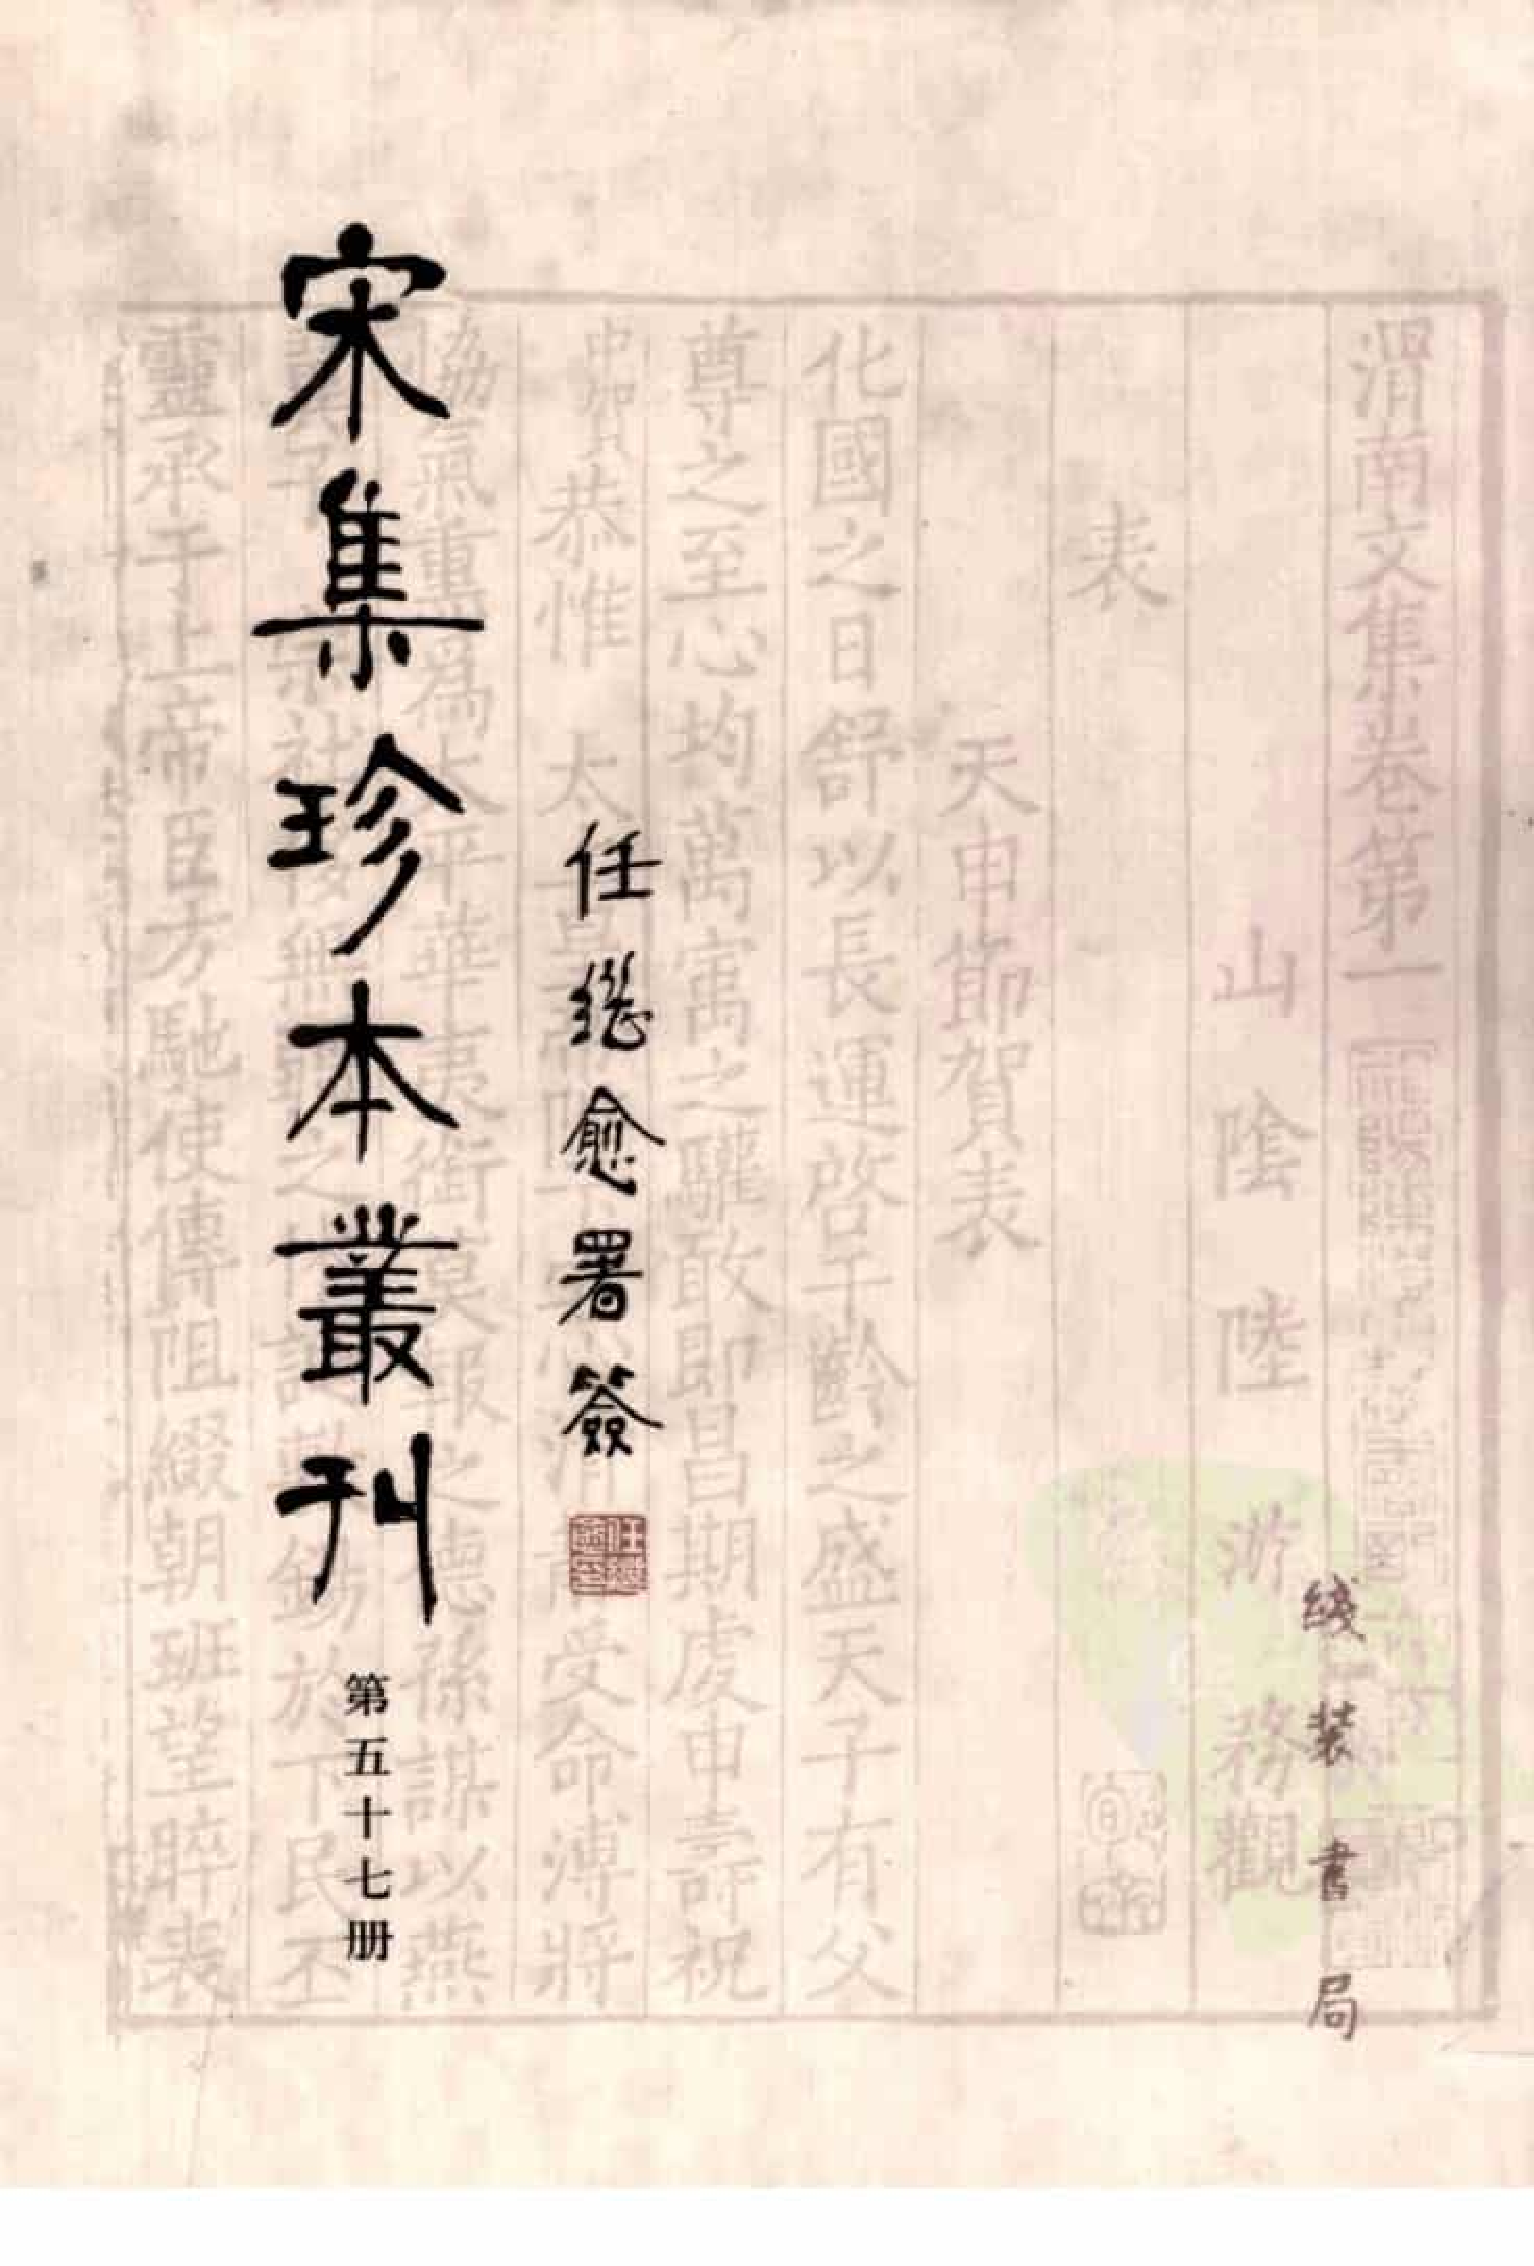 渭南文集卷第一
綫装書局
山陰陸游務觀
表
天申節賀表
化國之日舒以長運啓千齡之盛天子有父
尊之至心均萬寓之驩敢即昌期虔申壽祝
中賀恭惟 太上皇 受命溥將
任继愈署簽
協氣重爲太平華夷銜莫報之德孫謀以燕
宋集珍本叢刊
第五十七册
錫於下民丕
靈承于上帝臣方馳使傳阻綴朝班望睟表